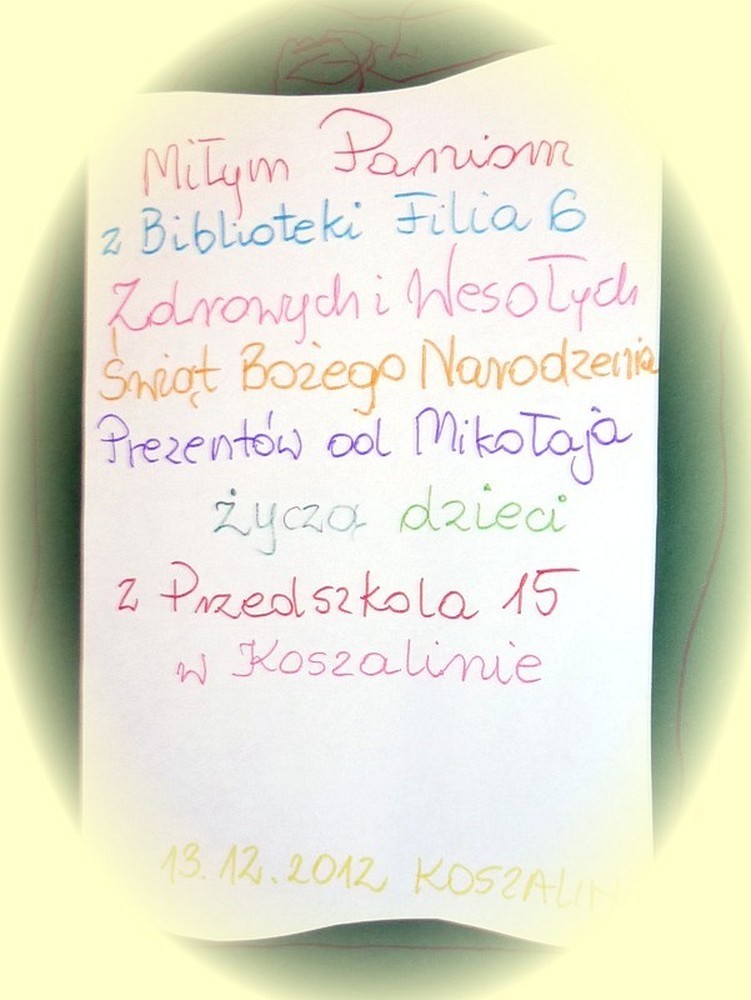 Miłym Paniom
z Biblioteki Filia 6
Zdrowych i Wesołych
Świąt Bożego Narodzenia
Prezentów od Mikołaja
życzą dzieci
z Przedszkola 15
w Koszalinie
13.12.2012 KOSZALIN